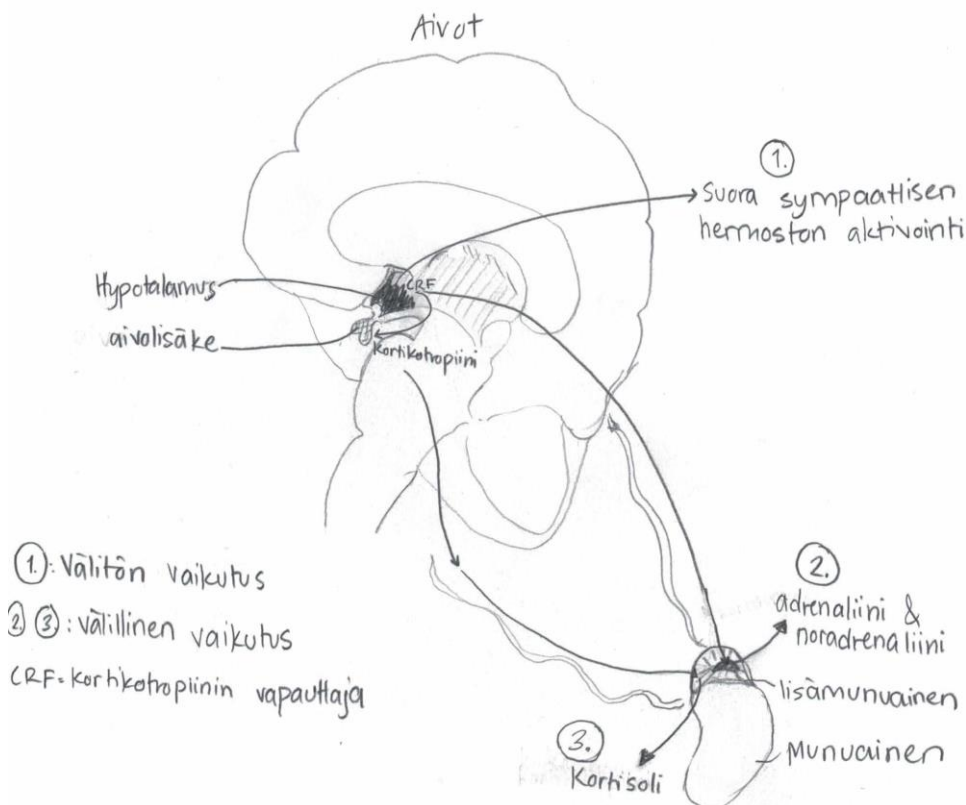 Aivot
①.
Suora sympaattisen
hermoston aktivointi
Hypotalamus
CRF
aivolisäke
Kortikotropiini
①.: Välitön vaikutus
② ③: välillinen vaikutus
CRF=kortikotropiinin vapauttaja
②.
adrenaliini &
noradrenaliini
lisämunuainen
Munuainen
③.
Kortisoli